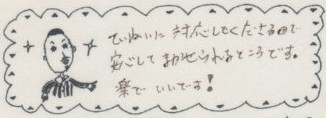 ていねいに対応してくださるので
安心してまかせられるところです。
楽でいいです!